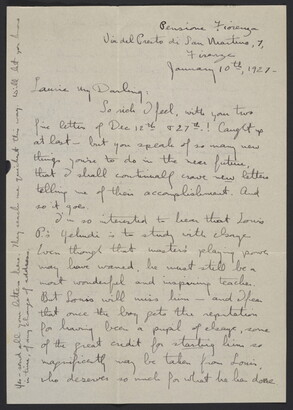 Pensione Fiorenza
Via del Presto di San Martino, 7,
Firenze
January 10th, 1927.
Laurie my Darling,
So rich I feel, with you two
fine letter of Dec 18th & 27th! Caught up
at last – but you speak of so many new
things you're to do in the near future,
that I shall continually crave new letters
telling me of their accomplishment. And
so it goes.
I'm so interested to hear that Louis
P's Yehudi is to study with
Even though that master's playing power
may have waned, he must still be a
most wonderful and inspiring teacher.
But Louis will miss him – and I fear
that once the boy gets the reputation
for having been a pupil of some
of the great credit for starting him so
magnificently may be taken from Louis,
who deserves so much for what he has done
send all letters here. They reach me quickest this way. Will let you know
in time, if any change of address.